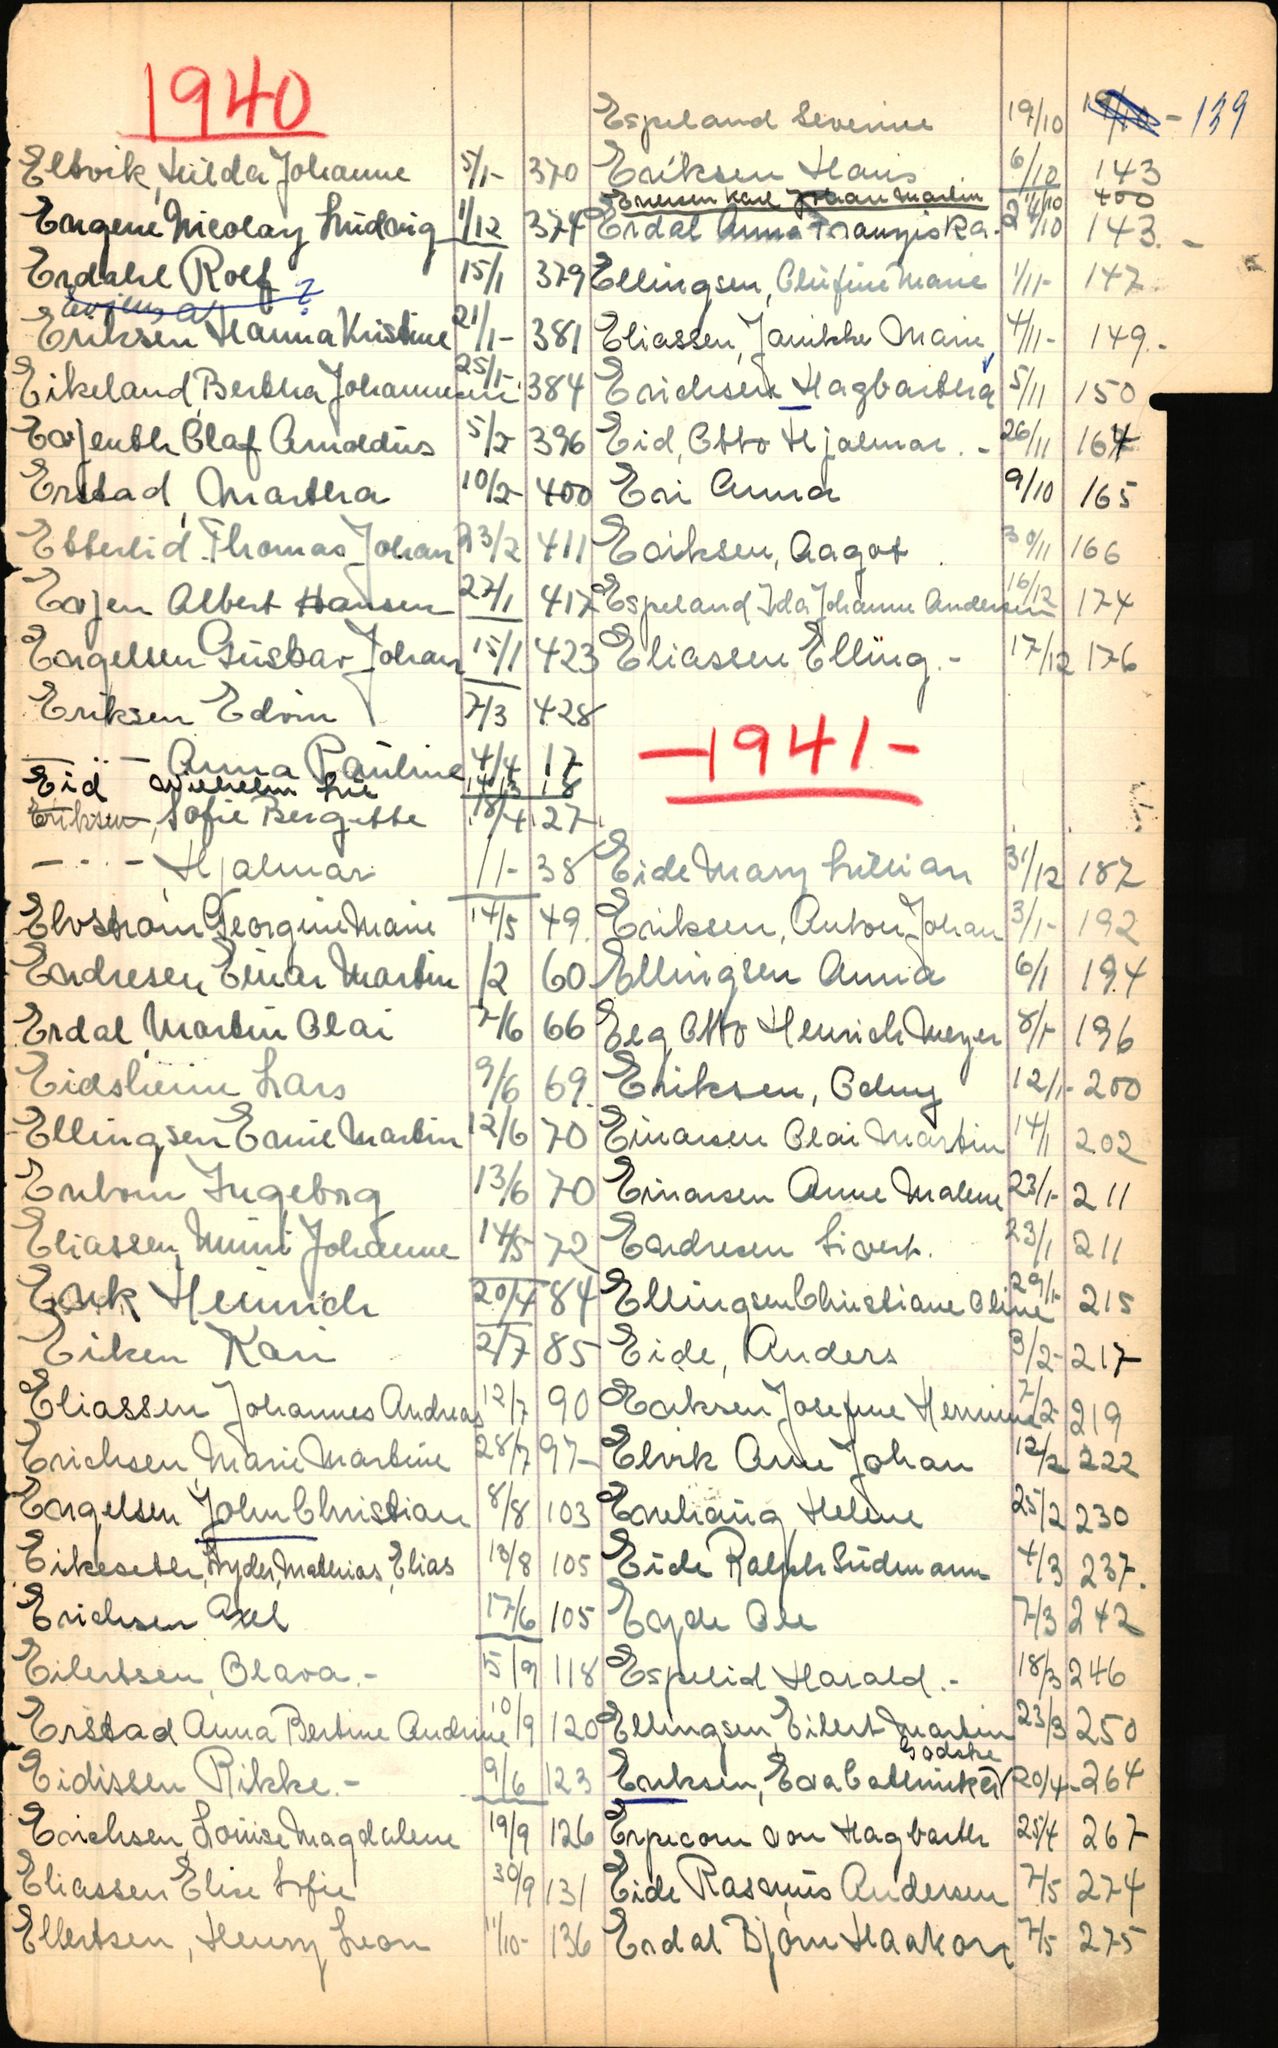 1940
Eltvik, Hulda Johanne 5/1- 370
Engene Nicolay Ludvig 1/12 374
Erdahl Rolf 15/1 379
?
Eriksen Hanna Kristine 21/1- 381
Eikeland, Bertha Johanne 25/1- 384
Evjenth Olaf Arnoldus 5/2 396
Erstad, Martha 10/2- 400
Etterlid Thomas Johan 23/2 411
Evjen Albert Hansen 27/1 417
Engelsen Gustav Johan 15/1 423
Eriksen Edvin 7/3 428
— " — Anna Pauline 4/4 17
Eid Wilhelm Lie 14/3 18
Eriksen, Sofie Bergitte 18/4 27
- - - - Hjalmar 11- 38
Elvstrøm Georgine Marie 14/5 49
Endresen, Einar Martin 1/2 60
Erdal, Martin Olai 7/6 66
Eidsheim Lars 9/6 69.
Ellingsen Emil Martin 12/6 70
Ingeborg 13/6 70
Eliassen, Mimi Johanne 14/5 72
Enk Heinrich 20/4 84
Eiken Kari 2/7 85
Eliassen Johannes Andreas 12/7 90
Erichsen, Marie Martine 28/7 97-
Engelsen, John Christian 8/8 103
Eikeseth, Ryder, Mathias, Elias 13/8 105
Erichsen Axel 17/6 105
Eilertsen, Olava.- 5/9 118
Erstad Anna Bertine Andrine 10/9 120
Eidissen Rikke.- 9/6 123
Erichsen Louise Magdalene 19/9 126
Eliassen Elise Sofie 30/9 131
Ellertsen, Henry Leon 11/10- 136
Espeland Severine 19/10 - 139
Eriksen Hans 6/10 143
Enersen Karl Johan Martin 400
Erdal Anna Franziska. 24/10 143.-
Ellingsen, Olufine Marie 1/11- 147
Eliassen, Janikke Marie 4/11- 149.-
Erichsen Hagbarth 5/11 150
Eid, Otto Hjalmar.- 26/11 164
Eri Anna 9/10 165
Eriksen, Aagot 30/11 166
Espeland Ida Johanne Andersen 16/12 174
Eliassen Elling.- 17/12 176
-1941-
Eide Mary Lillian 31/12 187
Eriksen, Anton Johan 3/1- 192
Ellingsen Anna 6/1 194
Eeg Otto Henrich Meyer 8/1- 196
Eriksen, Odny 12/1- 200
Einarsen Olai Martin 14/1 202
Einarsen Anne Malene 23/1- 211
Endresen Sivert. 23/1 211
Ellingsen Christiane Oline 29/1- 215
Eide, Anders 3/2- 217
Eriksen Josefine Hermine 7/2- 219
Elvik Arne Johan 12/2 222
Helene 25/2 230
Eide Ralph Südmann 4/3 237.
Eyde Ole 7/3 242
Espelid Harald.- 18/3 246
Ellingsen, Eilert Martin 23/3 250
Godske
Eriksen, Eva Cathinka 20/4- 264
Erpecom von Hagbarth 25/4 267
Eide Rasmus Andersen 7/5 274
Erdal Bjørn Haakon 7/5 275